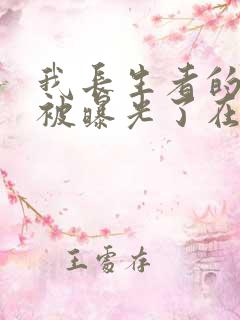 我长生者的
被曝光了在
王雪存